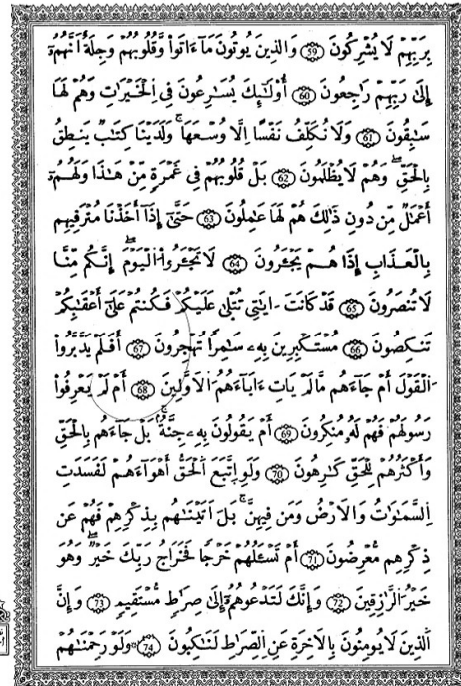 بِرَبِّهِمْ لَا يُشْرِكُونَ 59 وَالذِينَ يُوتُونَ مَا ءَاتَوا وَّقُلُوبُهُمْ وَجِلَةٌ اَنَّهُمُۥ
إِلَىٰ رَبِّهِمْ رَٰجِعُونَ 60 أُوْلَٰٓئِكَ يُسَٰرِعُونَ فِي الْخَيْرَٰتِ وَهُمْ لَهَا
سَٰبِقُونَ 61 وَلَا نُكَلِّفُ نَفْسًا اِلَّا وُسْعَهَا وَلَدَيْنَا كِتَٰبٌ يَنطِقُ
بِالْحَقِّ وَهُمْ لَا يُظْلَمُونَ 62 بَلْ قُلُوبُهُمْ فِي غَمْرَةٍ مِّنْ هَٰذَا وَلَهُمُۥ
أَعْمَٰلٌ مِّن دُونِ ذَٰلِكَ هُمْ لَهَا عَٰمِلُونَ 63 حَتَّىٰ إِذَا أَخَذْنَا مُتْرَفِيهِم
بِالْعَذَابِ إِذَا هُمْ يَجْـَٔرُونَ 64 لَا تَجْـَٔرُوا الْيَوْمَ إِنَّكُم مِّنَّا
لَا تُنصَرُونَ 65 قَدْ كَانَتَ اٰيَٰتِي تُتْلَىٰ عَلَيْكُمْ فَكُنتُمْ عَلَىٰ أَعْقَٰبِكُمْ
تَنكِصُونَ 66 مُسْتَكْبِرِينَ بِهِۦ سَٰمِرًا تُهْجِرُونَ 67 أَفَلَمْ يَدَّبَّرُوا
الْقَوْلَ أَمْ جَآءَهُم مَّا لَمْ يَاتِ ءَابَآءَهُمُ الَاوَّلِينَ 68 أَمْ لَمْ يَعْرِفُوا
رَسُولَهُمْ فَهُمْ لَهُۥ مُنكِرُونَ 69 أَمْ يَقُولُونَ بِهِۦ جِنَّةٌ بَلْ جَآءَهُم بِالْحَقِّ
وَأَكْثَرُهُمْ لِلْحَقِّ كَٰرِهُونَ 70 وَلَوِ اِتَّبَعَ الْحَقُّ أَهْوَآءَهُمْ لَفَسَدَتِ
اِلسَّمَٰوَٰتُ وَالَارْضُ وَمَن فِيهِنَّ بَلَ اَتَيْنَٰهُم بِذِكْرِهِمْ فَهُمْ عَن
ذِكْرِهِم مُّعْرِضُونَ 71 أَمْ تَسْـَٔلُهُمْ خَرْجًا فَخَرَاجُ رَبِّكَ خَيْرٌ وَهُوَ
خَيْرُ الرَّٰزِقِينَ 72 وَإِنَّكَ لَتَدْعُوهُمُۥ إِلَىٰ صِرَٰطٍ مُّسْتَقِيمٍ 73 وَإِنَّ
اَلذِينَ لَا يُومِنُونَ بِالَاخِرَةِ عَنِ الصِّرَٰطِ لَنَٰكِبُونَ 74 وَلَوْ رَحِمْنَٰهُمْ